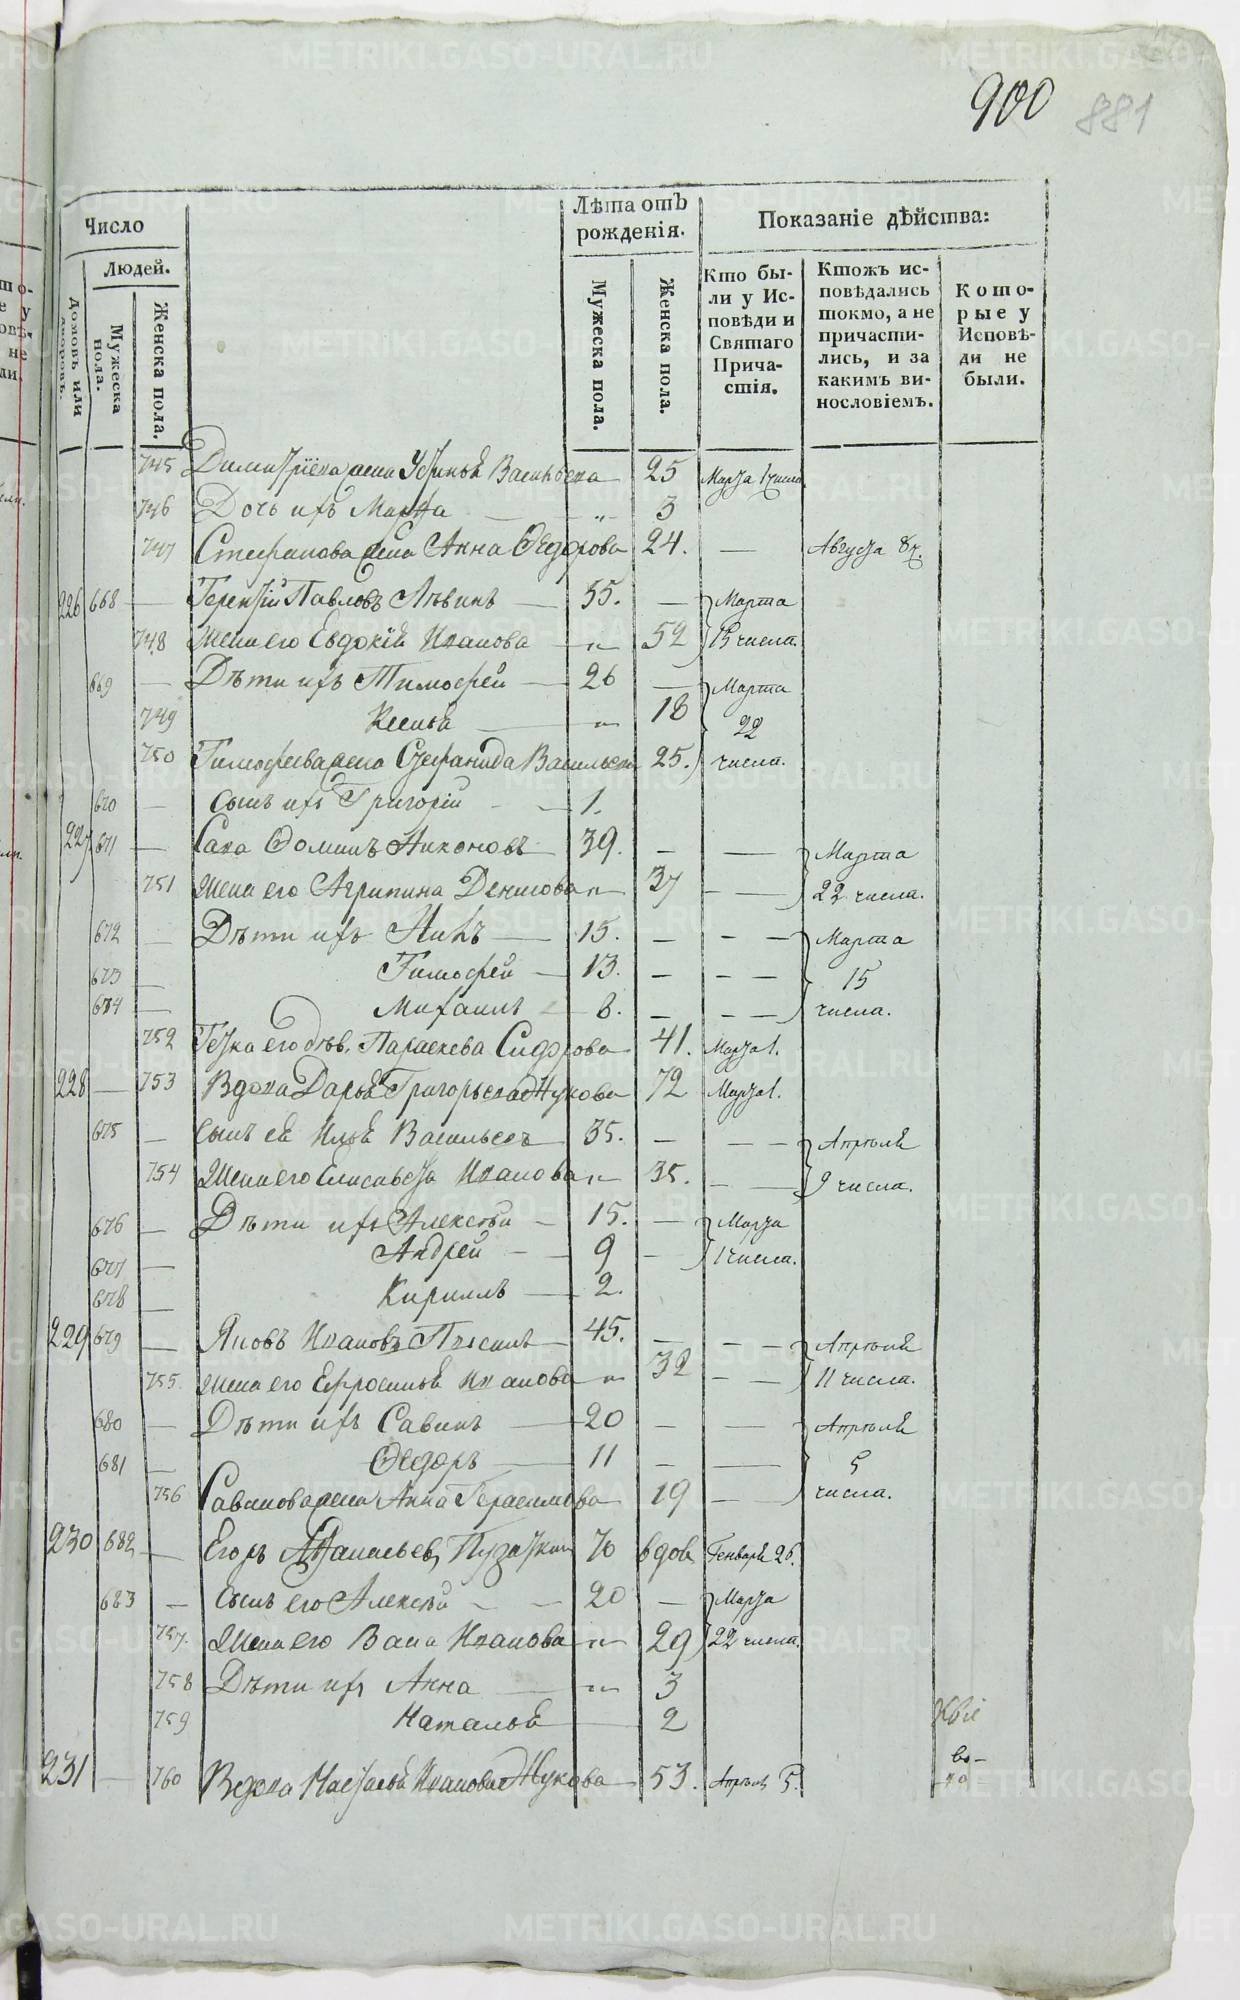 900 881
Число
Людей.
Домовъ или дворовъ.
Мужеска пола.
Женска пола.
Лѣта отъ рожденія.
Мужеска пола.
Женска пола.
Показаніе дѣйства:
Кто бы-
ли у Ис-
повѣди и
Святаго
Прича-
стія.
Ктожъ ис-
повѣдались
токмо, а не
причасти-
лись, и за
какимъ ви-
нословіемъ.
Кото-
рые у
Исповѣ-
ди не
были.
745 Димитріева жена Устинья Васильева 25 Марта 1 числа
746 Дочь ихъ Марѳа — „ 3
747 Стефанова жена Анна Ѳедорова 24. — Августа 8 ч.
226 668 — Терентій Павловъ 55. — Марта
748 Жена его Евдокія Иванова — „ 52 15 числа.
669 — Дѣти ихъ Тимофей — 26 — Марта
749 Ксенія — „ 18 22
750 Тимофеева жена Стефанида Васильева 25. числа.
670 — Сынъ ихъ Григорій — 1.
227 671 — Сава Ѳоминъ Никоновъ 39. — — Марта
751 Жена его Агрипина Денисова „ 37 — — 22 числа.
672 — Дѣти ихъ — 15. — — — Марта
673 — Тимофей — 13. — — — 15
674 — Михаилъ 6. — — — числа.
752 Тетка его дѣв. Параскева Сидорова 41. Марта 1.
228 — 753 Вдова Дарья Григорьева Жукова 72 Марта 1.
675 — Сынъ ея Илья Васильевъ 35. — — — Апрѣля
754 Жена его Елисавета Иванова „ 35. — — 9 числа.
676 — Дѣти ихъ Алексѣй — 15. — Марта
677 — Андрей — — 9 — 1 числа.
678 — Кириллъ — 2.
229 679 — Яковъ Ивановъ 45. — — — Апрѣля
755. Жена его Ефросинья Иванова „ 32 — — 11 числа.
680 — Дѣти ихъ Савинъ — 20 — — Апрѣля
681 — Ѳедоръ — 11 — — 5
756 Савинова жена Анна Герасимова 19 — числа.
230 682 — Егоръ Аѳанасьевъ 70 вдов Генваря 26.
683 — Сынъ его Алексѣй — — 20 — Марта
757. Жена его Иванова „ 29 22 числа.
758 Дѣти ихъ Анна — „ 3
759 Наталья — 2
231 — 760 Вдова Настасья Иванова Жукова — 53. Апрѣля 5.
METRIKI.GASO-URAL.RU